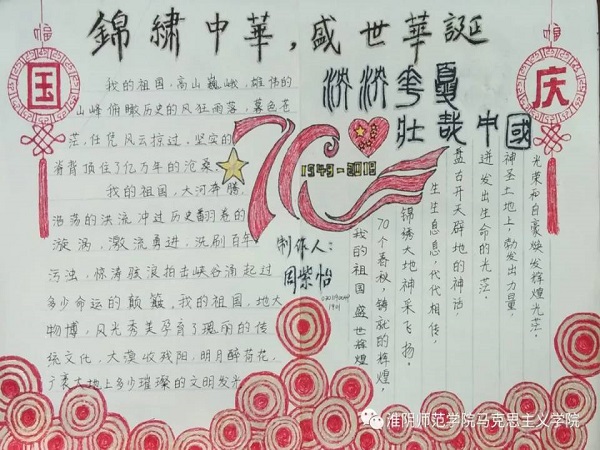 錦繡中華，盛世華誕
国
庆
泱泱华夏
壮哉中國
我的祖国，高山巍峨，雄伟的
山峰俯瞰历史的风狂雨落，暮色苍
茫，任凭风云掠过，坚实的
脊背顶住了亿万年的沧桑。
我的祖国，大河奔腾，
浩荡的洪流冲过历史翻卷的
漩涡，激流勇进，洗刷百年
污浊，惊涛骇浪拍击峡谷涌起过
多少命运的颠簸。我的祖国，地大
物博，风光秀美孕育了瑰丽的传
统文化，大漠收残阳，明月醉荷花，
广袤大地上多少璀璨的文明发光
70
1949-2019
制作人：
周紫怡
光荣和自豪焕发辉煌光芒。
神圣土地上，勃发出力量，
迸发出生命的光芒。
盘古开天辟地的神话，
生生息息，代代相传，
锦绣大地神采飞扬。
70个春秋，铸就的辉煌，
我的祖国盛世辉煌
淮阴师范学院马克思主义学院